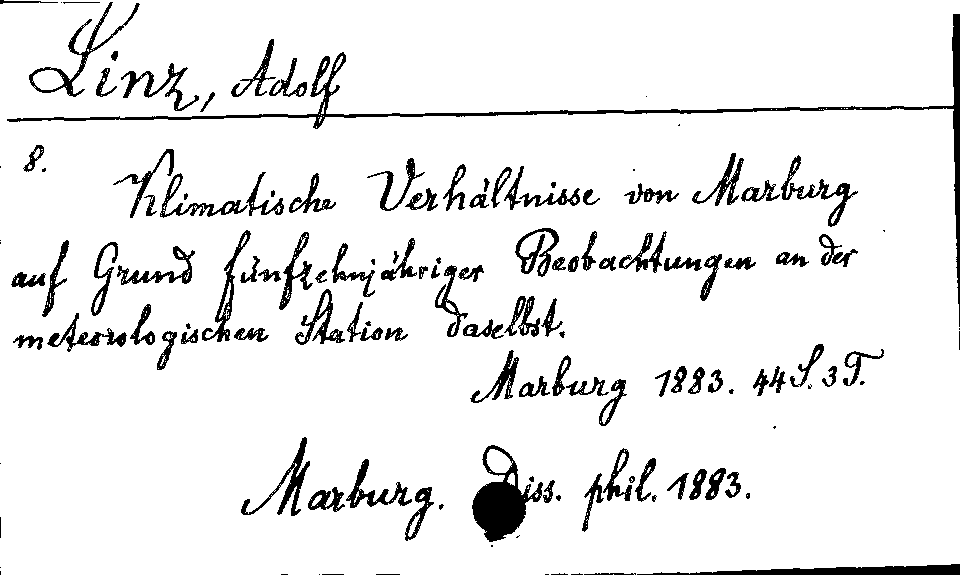 Linz, Adolf
8.
Klimatische Verhältnisse von Marburg
auf Grund fünfzehnjähriger Beobachtungen an der
meteorologischen Station daselbst.
Marburg 1883. 44 S. 3 T.
Marburg. Diss. phil. 1883.